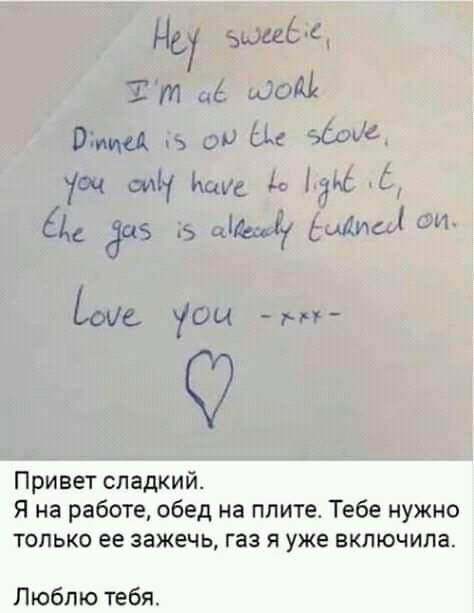 Hey sweetie,
I'm at work
Dinner is on the stove,
you only have to light it,
the gas is already turned on.
Love you -xxx-
Привет сладкий.
Я на работе, обед на плите. Тебе нужно
только ее зажечь, газ я уже включила.
Люблю тебя.